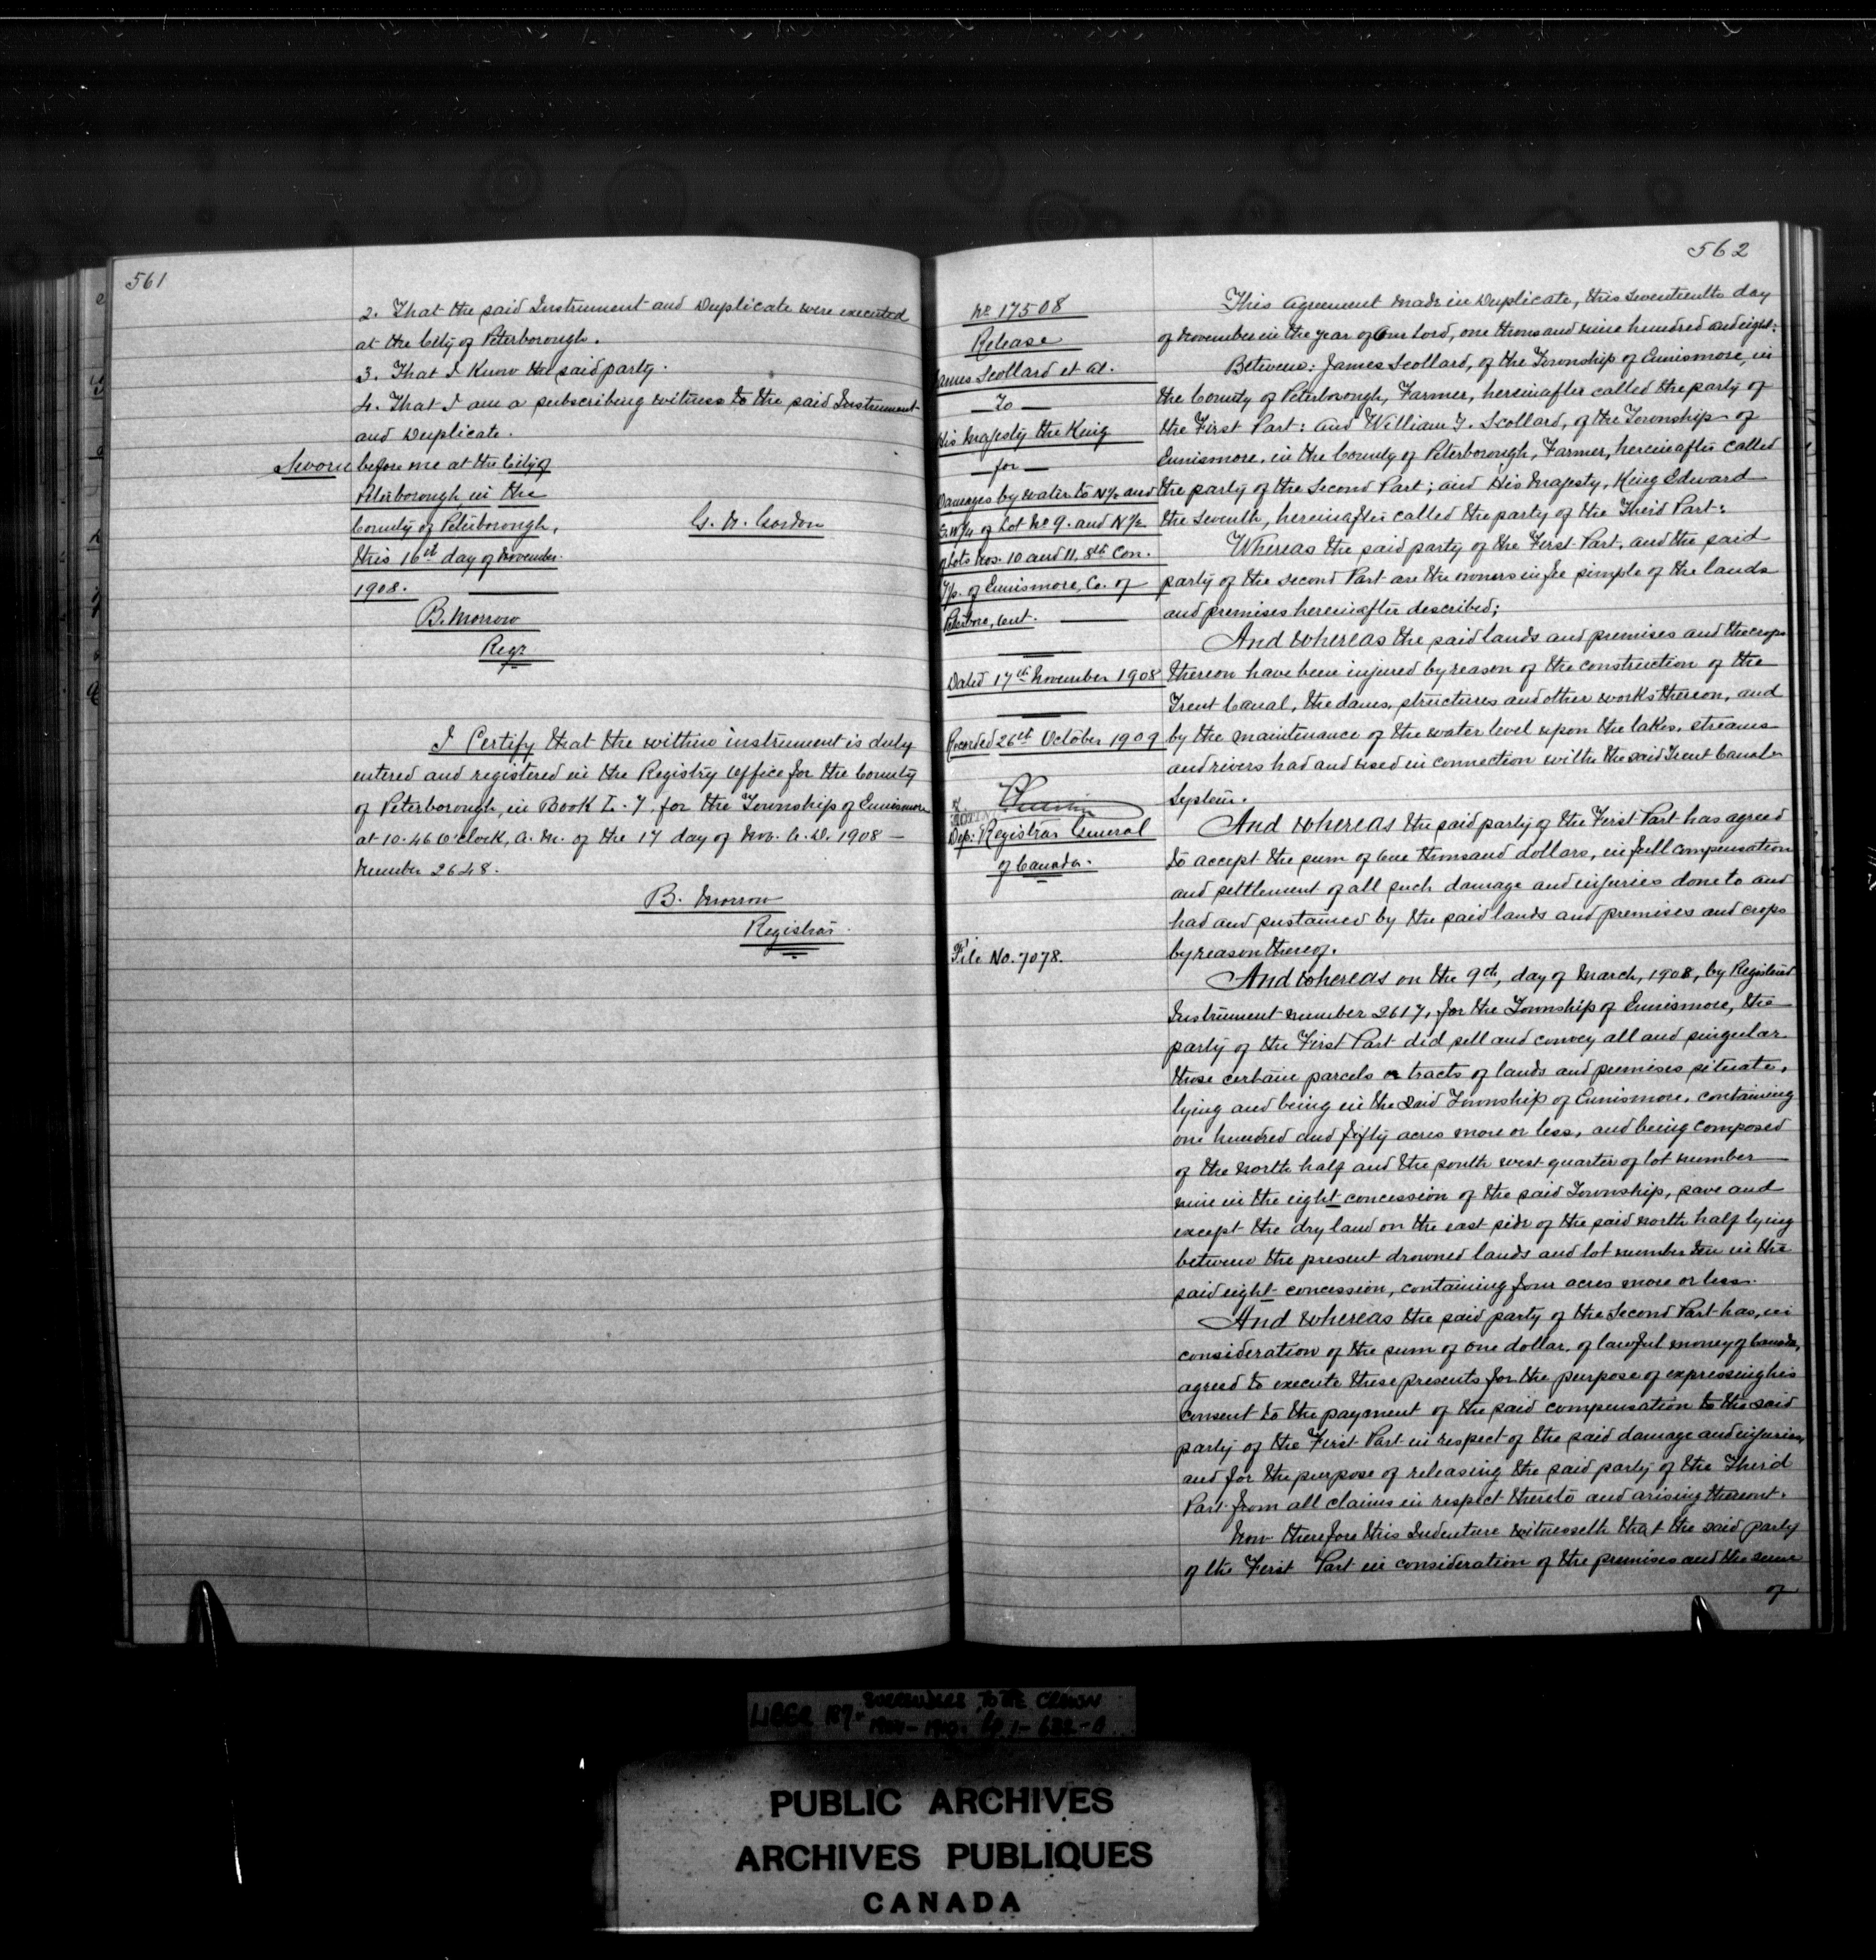 561
2. That the said Instrument and Duplicate were executed
at the City of Peterborough.
3. That I Know the said party.
4. That I am a subscribing witness to the said Instrument
and Duplicate.
Sworn before me at the City of
Peterborough, in the
County of Peterborough,
this 16th day of November
1908.
G. N. Gordon
B. Morrow
Regr
I Certify that the within instrument is duly
entered and registered in the Registry Office for the County
of Peterborough, in Book I. 7. for the Township of Ennismore
at 10.46 O'clock, A.M. of the 17 day of Nov. A.D. 1908 —
Number 2648.
B. Morrow
Registrar.
562
No 17508
Release
James Scollard et al.
— To —
His Majesty the King
— for —
Damages by water to N½ and
S.W¼ of Lot No 9. and N½
of Lots Nos. 10 and 11, 8th Con.
Tp. of Ennismore, Co. of
Peterboro, Ont.
Dated 17th November 1908
Recorded 26th October 1909
Dep: Registrar General
of Canada.
File No. 7078.
This Agreement made in Duplicate, this seventeenth day
of November in the year of Our Lord, one thousand nine hundred and eight:
Between: James Scollard, of the Township of Ennismore, in
the County of Peterborough, Farmer, hereinafter called the party of
the First Part: and William J. Scollard, of the Township of
Ennismore, in the County of Peterborough, Farmer, hereinafter called
the party of the Second Part; and His Majesty, King Edward
the Seventh, hereinafter called the party of the Third Part:
Whereas the said party of the First Part, and the said
party of the Second Part are the owners in fee simple of the lands
and premises hereinafter described;
And Whereas the said lands and premises and the crops
thereon have been injured by reason of the construction of the
Trent Canal, the dams, structures and other works thereon, and
by the maintenance of the water level upon the lakes, streams
and rivers had and used in connection with the said Trent Canal
System.
And Whereas the said party of the First Part has agreed
to accept the sum of One thousand dollars, in full compensation
and settlement of all such damage and injuries done to and
had and sustained by the said lands and premises and crops
by reason thereof.
And Whereas on the 9th, day of March, 1908, by Registered
Instrument number 2617, for the Township of Ennismore, the
party of the First Part did sell and convey all and singular
those certain parcels or tracts of lands and premises situate,
lying and being in the said Township of Ennismore, containing
one hundred and fifty acres more or less, and being composed
of the North half and the south west quarter of lot number
nine in the eight concession of the said Township, save and
except the dry land on the east side of the said north half lying
between the present drowned lands and lot number ten in the
said eight concession, containing four acres more or less.
And Whereas the said party of the Second Part has, in
consideration of the sum of one dollar, of lawful money of Canada,
agreed to execute these presents for the purpose of expressing his
consent to the payment of the said compensation to the said
party of the First Part in respect of the said damage and injuries,
and for the purpose of releasing the said party of the Third
Part from all claims in respect thereto and arising thereout.
Now therefore this Indenture witnesseth that the said party
of the First Part in consideration of the premises and the sum
of
LIBER 187. SURRENDERS TO THE CROWN
PUBLIC ARCHIVES
ARCHIVES PUBLIQUES
CANADA